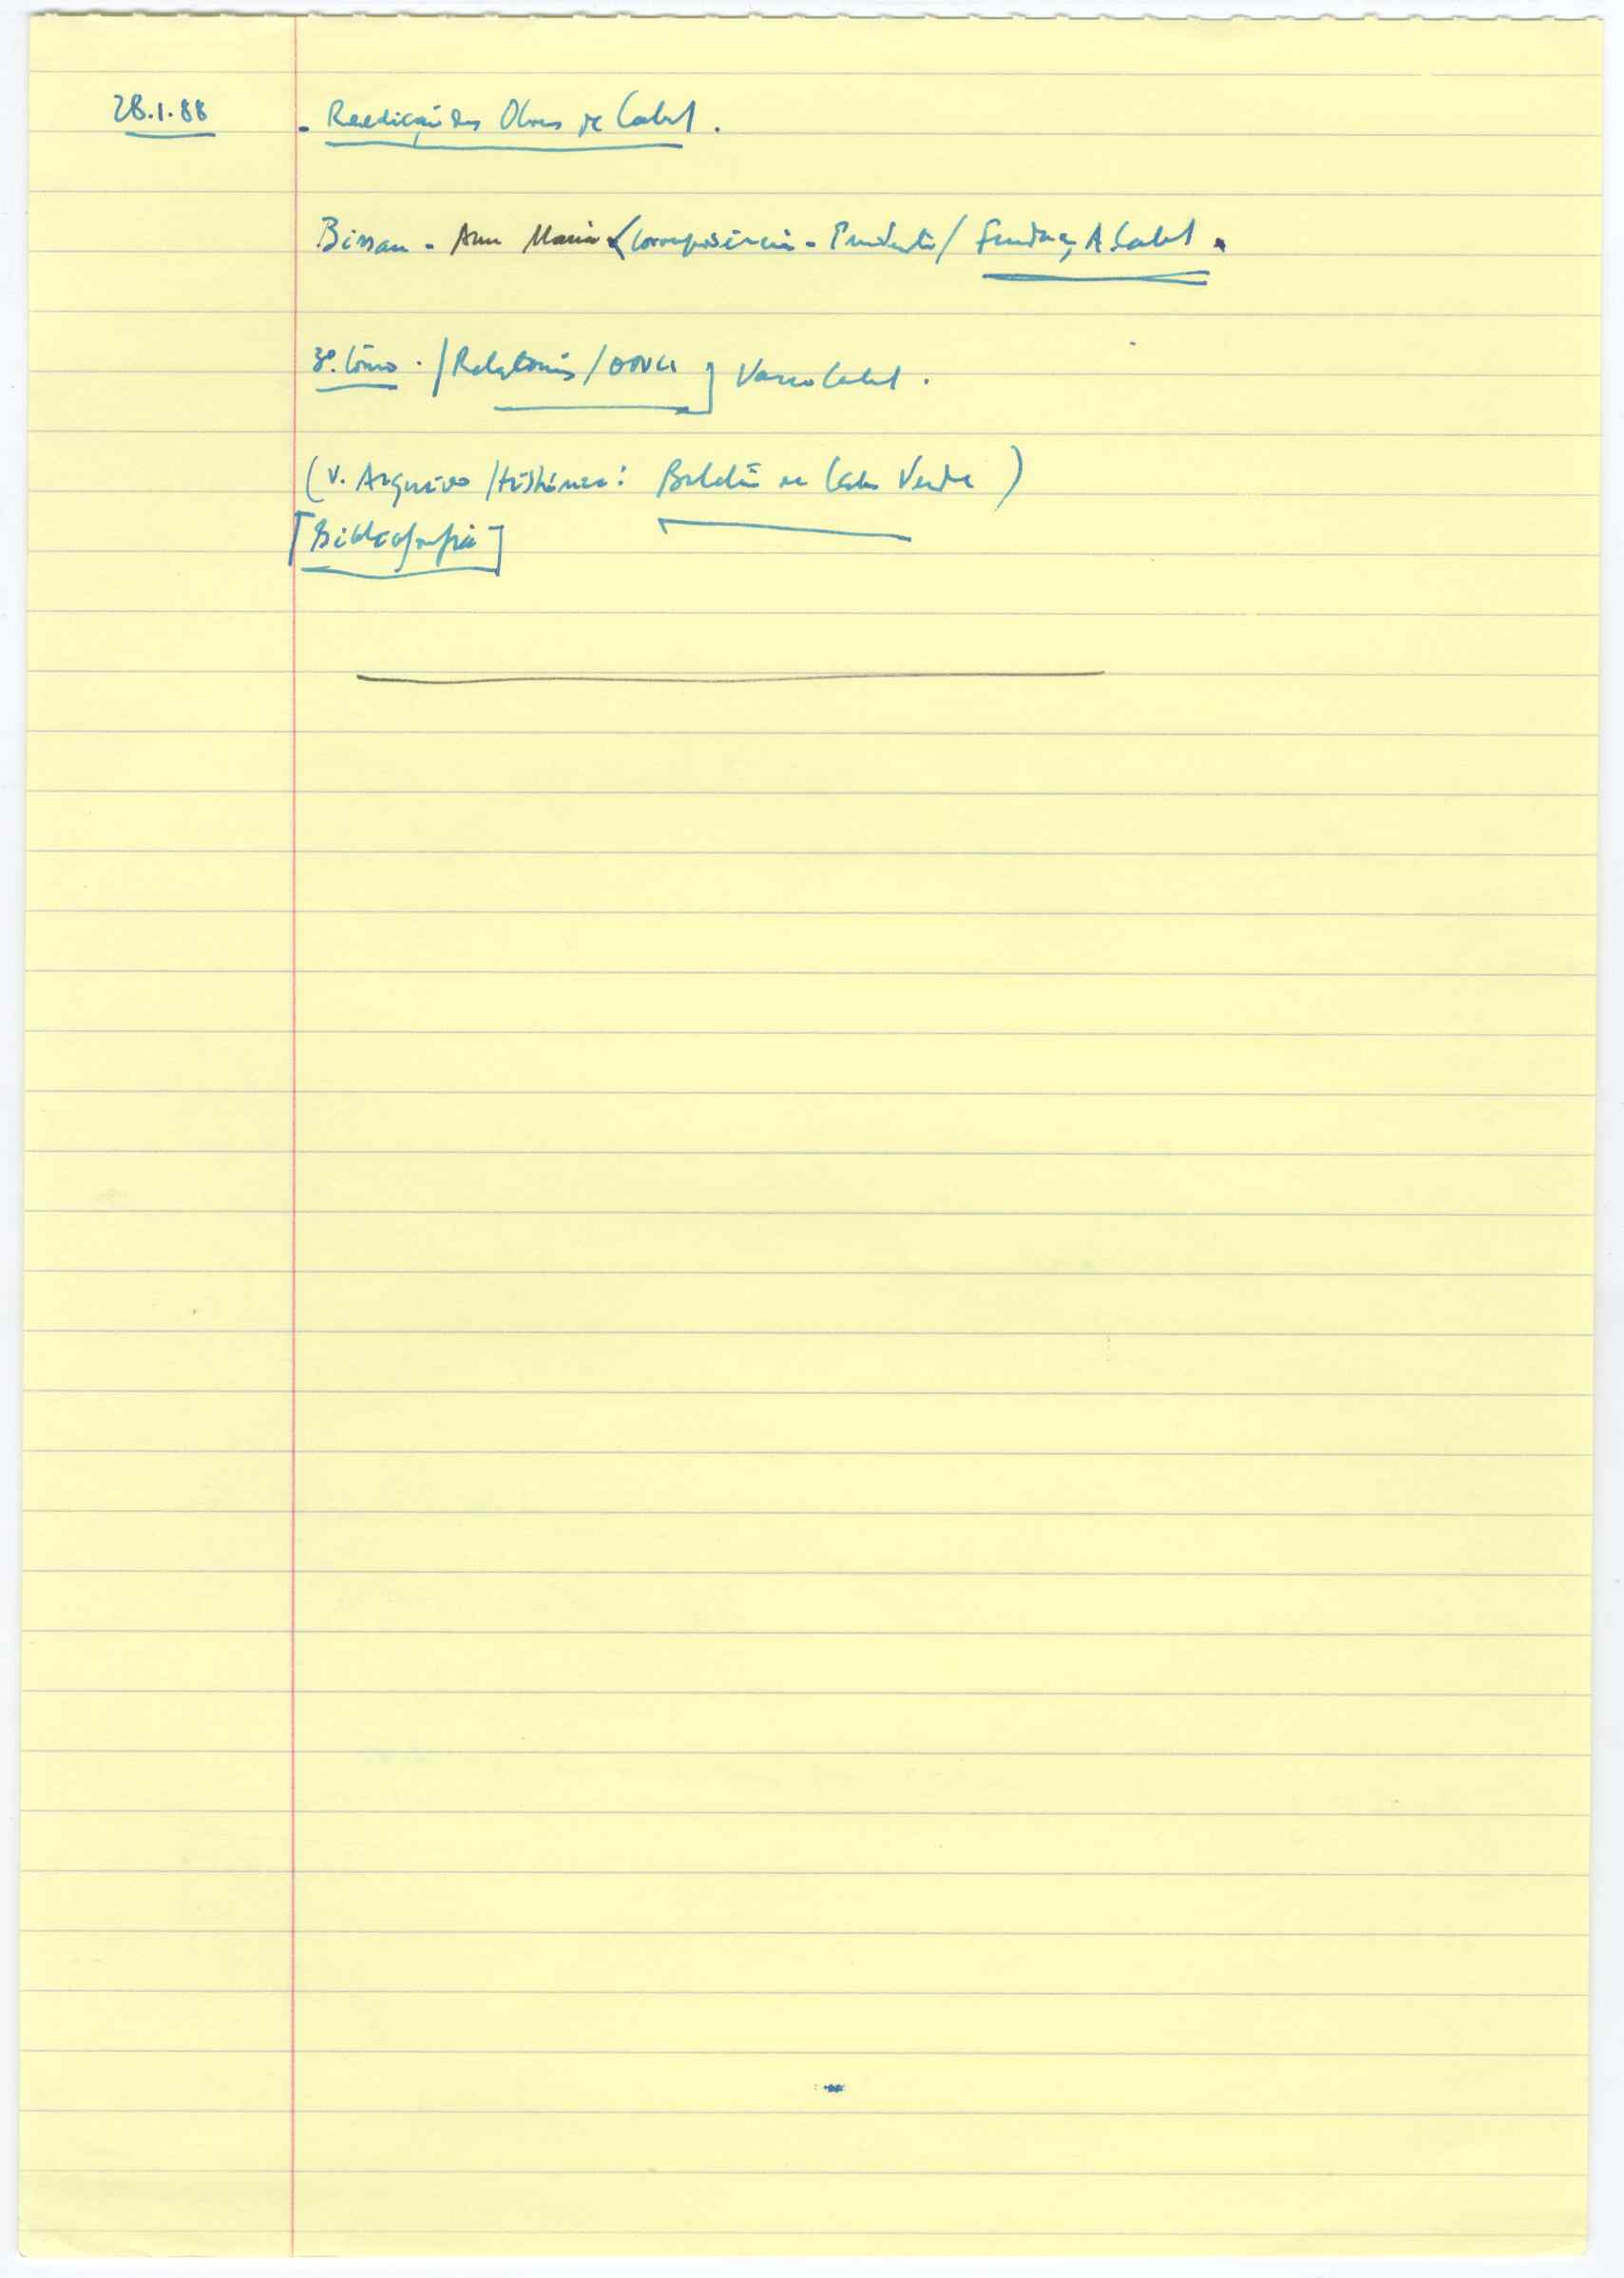 28.1.88 - Reedição das Obras de Cabral.
Bissau - Ana Maria (Correspondência - / Fundação A. Cabral.
3º. tomo. / Relatórios / ONU ] Vasco Cabral.
(V. Arquivo Histórico: Boletim de Cabo Verde)
[Bibliografia]